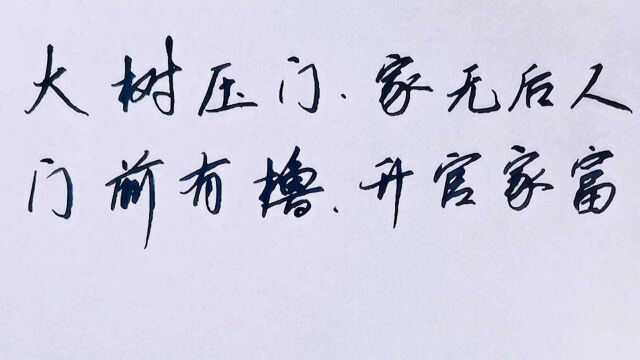 大树压门、家无后人
门前有橹、升官家富